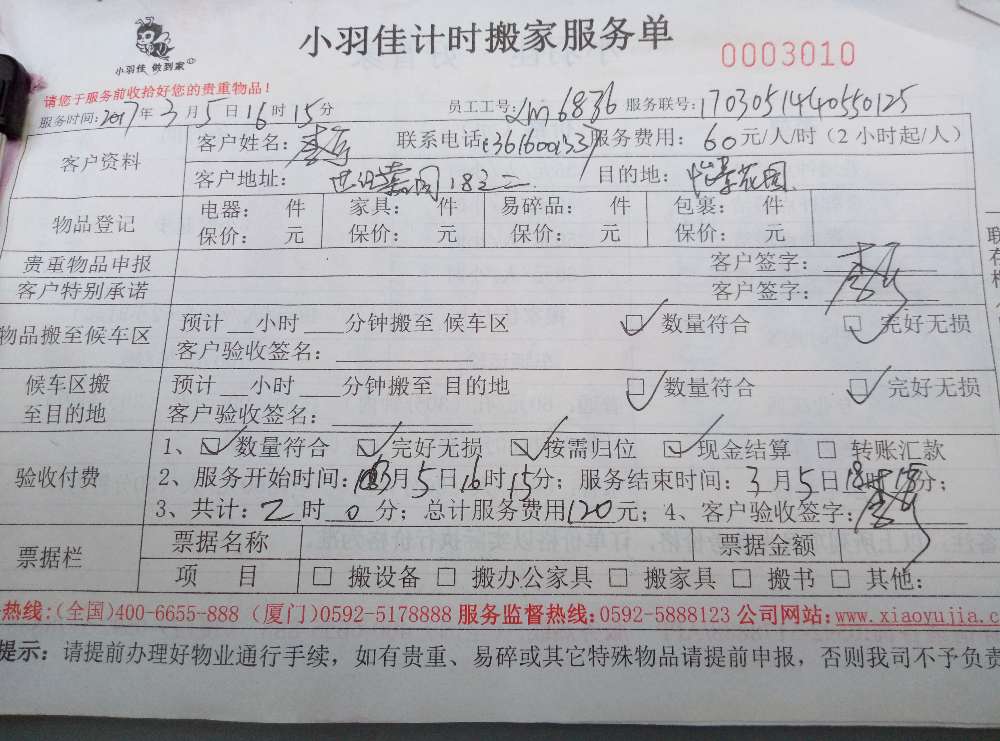 小羽佳计时搬家服务单
0003010
小羽佳 做到家
请您于服务前收拾好您的贵重物品!
服务时间:2017年3月5日16时15分 员工工号:xm6836 服务联号:1703051440550125
客户资料
客户姓名: 联系电话: 服务费用: 60元/人/时(2小时起/人)
客户地址: 目的地: 花园
物品登记
电器: 件 家具: 件 易碎品: 件 包裹: 件
保价: 元 保价: 元 保价: 元 保价: 元
贵重物品申报 客户签字:
客户特别承诺 客户签字:
物品搬至候车区
预计___小时___分钟搬至 候车区 ☑ 数量符合 ☑ 完好无损
客户验收签名:
候车区搬
至目的地
预计___小时___分钟搬至 目的地 ☑ 数量符合 ☑ 完好无损
客户验收签名:
验收付费
1、☑ 数量符合 ☑ 完好无损 ☑ 按需归位 ☑ 现金结算 □ 转账汇款
2、服务开始时间:3月5日16时15分; 服务结束时间:3月5日18时15分;
3、共计:2时0分; 总计服务费用120元; 4、客户验收签字:
票据栏
票据名称 票据金额
项 目 □ 搬设备 □ 搬办公家具 □ 搬家具 □ 搬书 □ 其他:
热线:(全国)400-6655-888 (厦门)0592-5178888 服务监督热线:0592-5888123 公司网站:www.xiaoyujia.c
提示: 请提前办理好物业通行手续, 如有贵重、易碎或其它特殊物品请提前申报, 否则我司不予负责